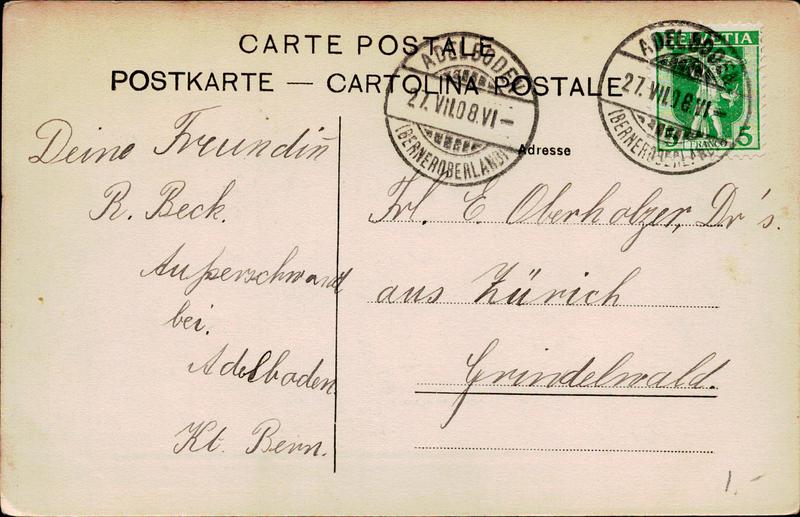 CARTE POSTALE
POSTKARTE — CARTOLINA POSTALE
ADELBODEN
27.VII.08.VI–
(BERNEROBERLAND)
ADELBODEN
27.VII.08.VI–
(BERNEROBERLAND)
HELVETIA
5
FRANCO
Adresse
Deine Freundin
R. Beck.
Außerschwand
bei.
Adelboden.
Kt. Bern.
Frl. E. Oberholzer, Dr's.
aus Zürich
Grindelwald.
1.-